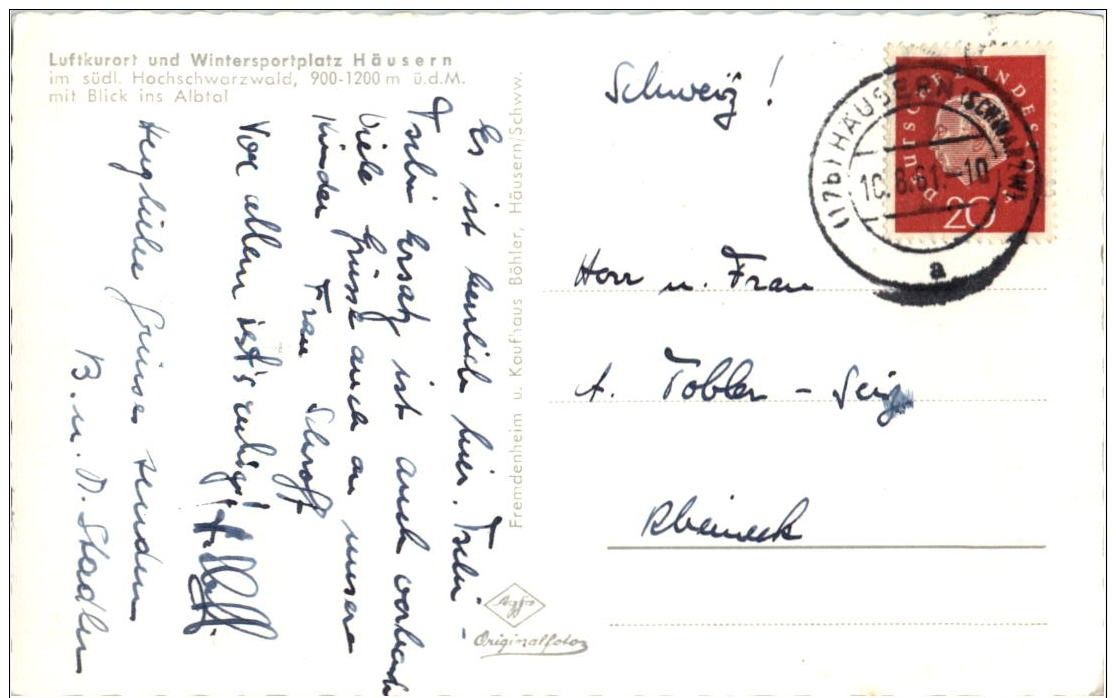 Luftkurort und Wintersportplatz Häusern
im südl. Hochschwarzwald, 900-1200 m ü.d.M.
mit Blick ins Albtal
Es ist herrlich hier.
ist auch
Viele Grüsse auch an unsere
Kinder Frau Schroff
Vor allem ist's ruhig!
Herzliche Grüsse senden
B. u. A. Stadler
Fremdenheim u. Kaufhaus Böhler, Häusern/Schww.
Agfa
Originalfoto
Schweiz!
DEUTSCHE BUNDESPOST
20
(17b) HÄUSERN (SCHWARZW)
10.8.61.-10
a
Herr u. Frau
A. Tobler - Seiz
Rheineck